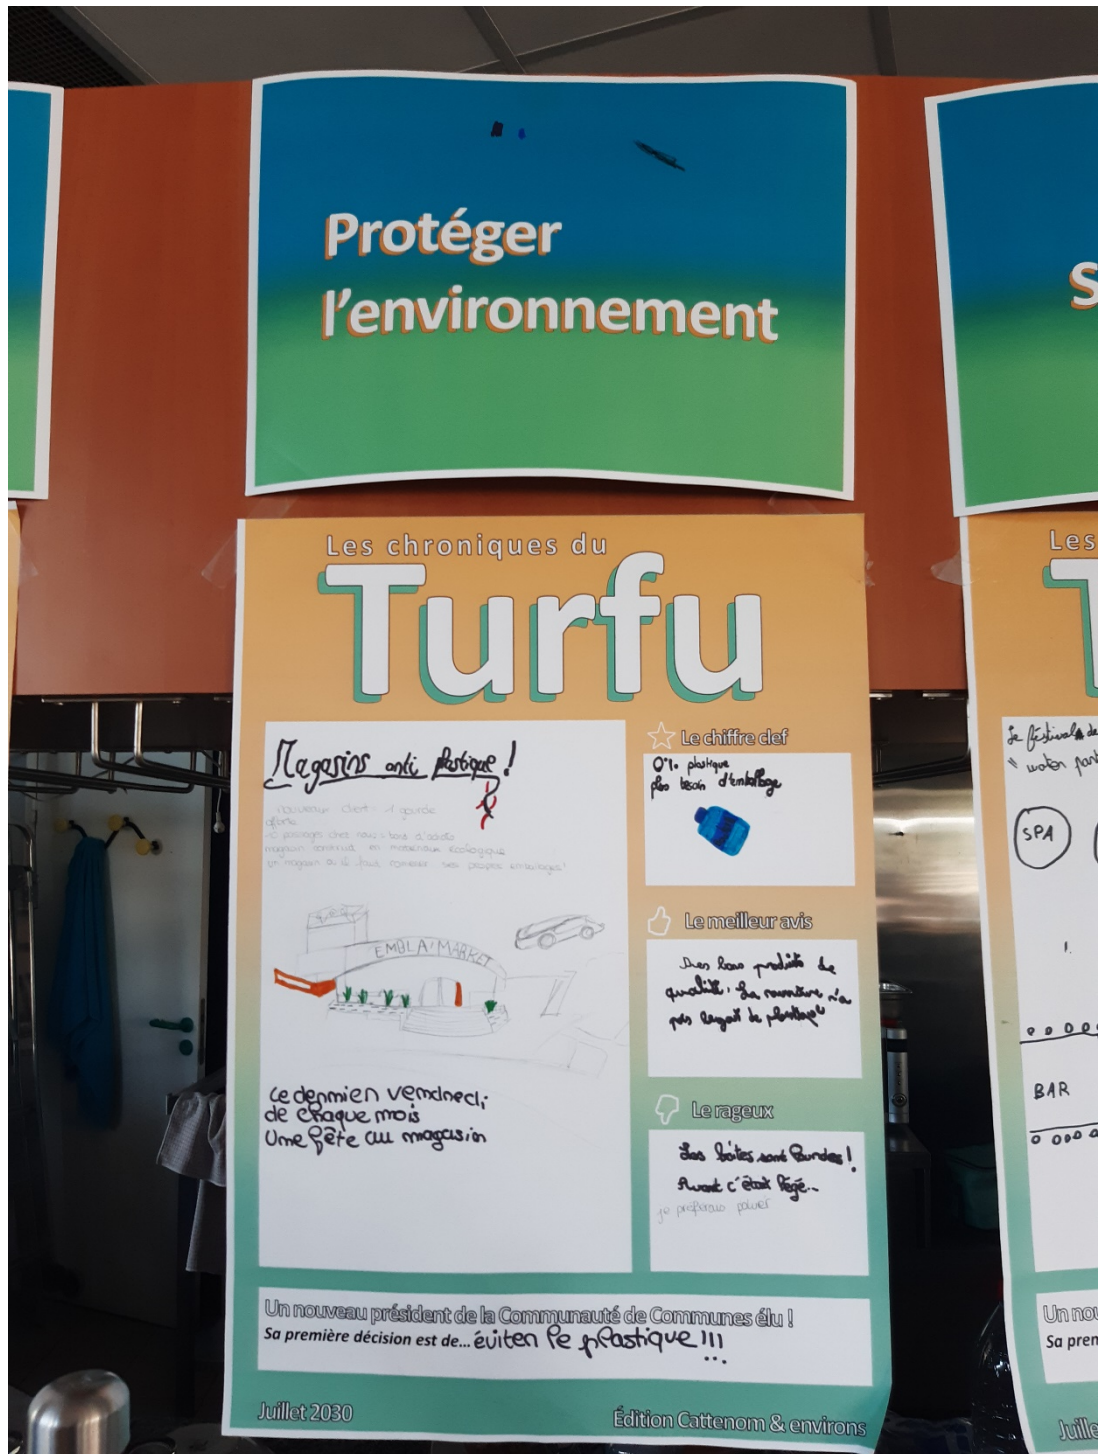 Protéger
l'environnement
S
Les chroniques du
Turfu
Magasins anti plastique !
nouveaux client = 1 gourde
offerte
10 passages chez nous = bons d'achats
magasin construit en matériaux écologique
un magasin où il faut ramener ses propres emballages !
EMBLA'MARKET
Le dernier vendredi
de chaque mois
Une fête au magasin
Le chiffre clef
0% plastique
plus besoin d'emballage
Le meilleur avis
Des bons produits de
qualité. La nourriture n'a
pas le goût de plastique
Le rageux
Les boîtes sont lourdes !
Avant c'était légé...
je préférais polluer
Un nouveau président de la Communauté de Communes élu !
Sa première décision est de... éviter le plastique !!!
Juillet 2030
Édition Cattenom & environs
Les
T
Le festival de
water
SPA
BAR
Un nou
Sa prem
Juille